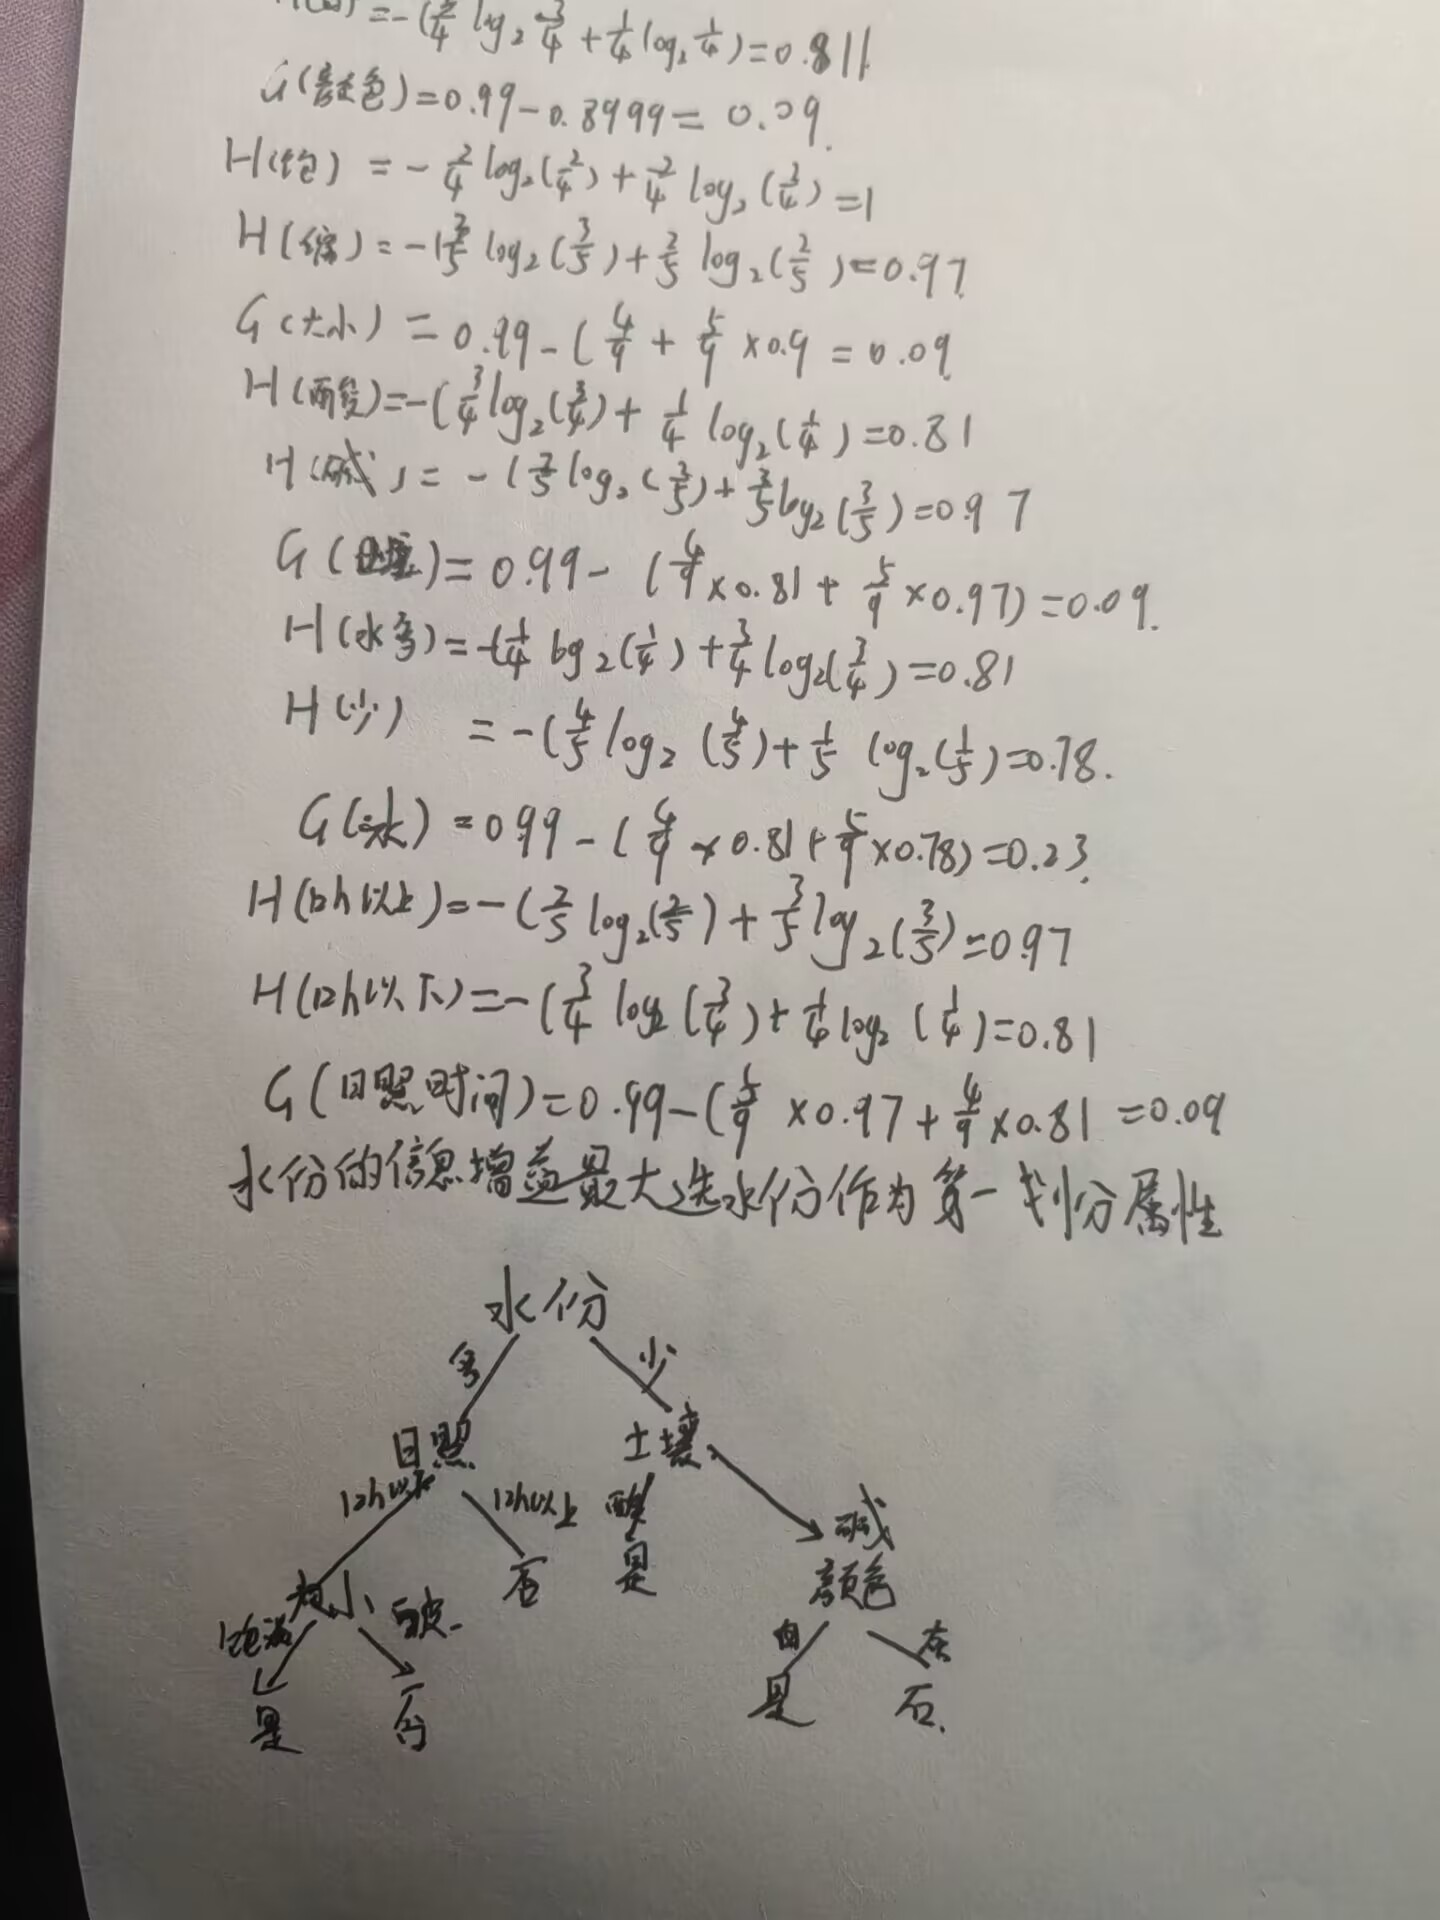 =-(3/4 log₂ 3/4 + 1/4 log₂ 1/4)=0.811
G(颜色)=0.99-0.8999=0.09.
H(饱) =-2/4 log₂(2/4)+2/4 log₂(2/4)=1
H(瘪)=-(3/5 log₂(3/5)+2/5 log₂(2/5)=0.97.
G(大小)=0.99-(4/9+5/9×0.9=0.09
H(酸)=-(3/4 log₂(3/4)+1/4 log₂(1/4)=0.81
H(碱)=-(2/5 log₂(2/5)+3/5 log₂(3/5)=0.97
G( )=0.99-(4/9×0.81+5/9×0.97)=0.09.
H(水多)=-(1/4 log₂(1/4)+3/4 log₂(3/4)=0.81
H(少) =-(4/5 log₂(4/5)+1/5 log₂(1/5)=0.78.
G(水)=0.99-(4/9×0.81+5/9×0.78)=0.23.
H(12h以上)=-(2/5 log₂(2/5)+3/5 log₂(3/5)=0.97
H(12h以下)=-(3/4 log₂(3/4)+1/4 log₂(1/4)=0.81
G(日照时间)=0.99-(5/9×0.97+4/9×0.81=0.09
水份的信息增益最大选水份作为第一划分属性
水份
多 少
日照 土壤
12h以下 12h以上 酸 碱
大小 否 是 颜色
饱满 皱 白 灰
是 否 是 否